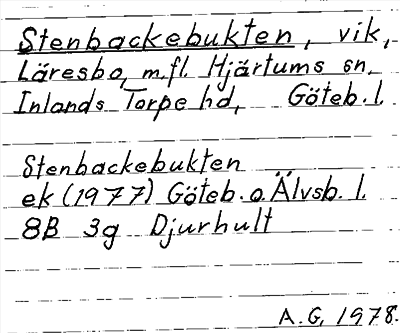 Stenbackebukten, vik,
Läresbo, m.fl. Hjärtums sn.
Inlands Torpe hd, Göteb. l.
Stenbackebukten
ek (1977) Göteb. o. Älvsb. l.
8B 3g Djurhult
A.G. 1978.